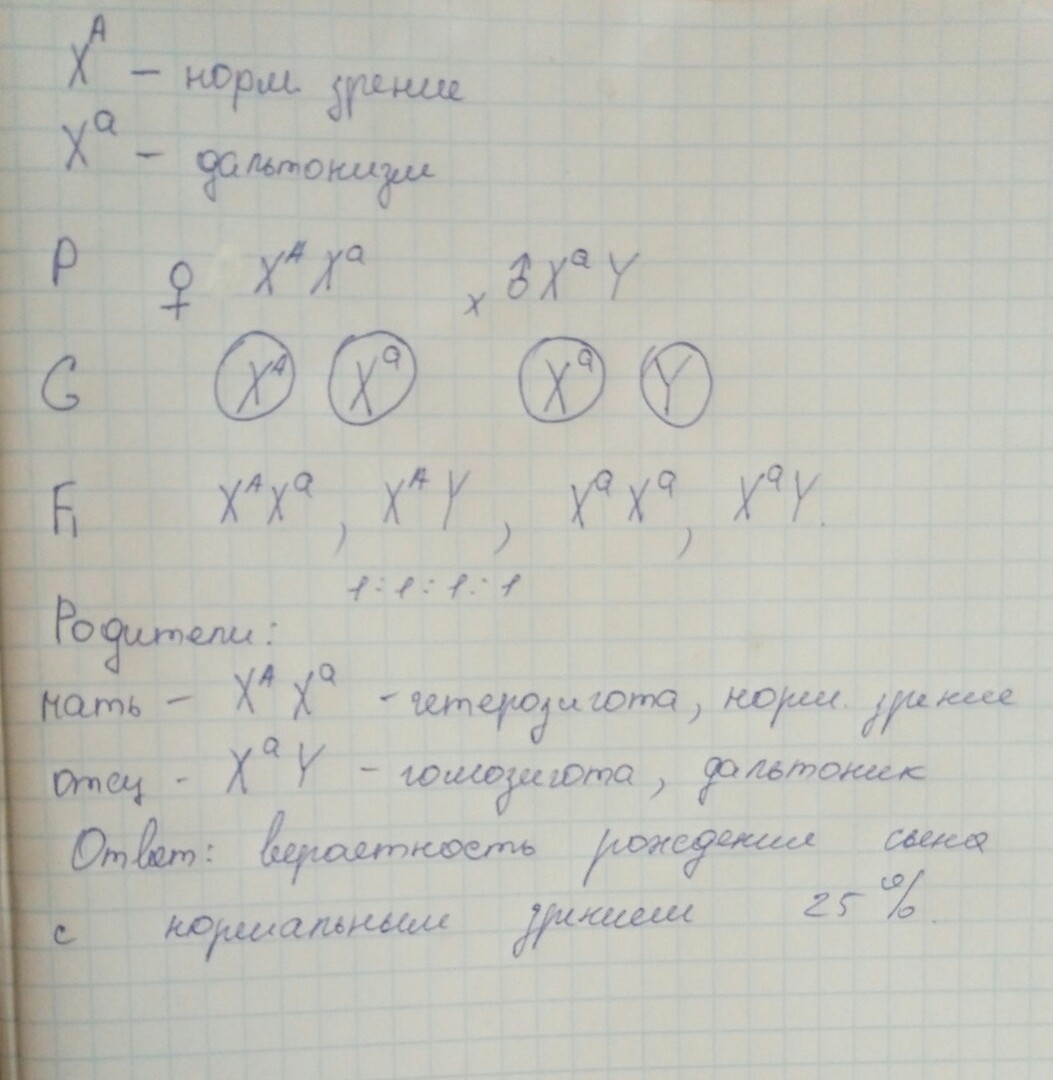 X^A - норм. зрение
X^a - дальтонизм
P ♀ X^A X^a x ♂ X^a Y
G X^A X^a X^a Y
F₁ X^A X^a, X^A Y, X^a X^a, X^a Y.
1:1:1:1
Родители:
мать - X^A X^a - гетерозигота, норм. зрение
отец - X^a Y - гомозигота, дальтоник
Ответ: вероятность рождения сына
с нормальным зрением 25%.